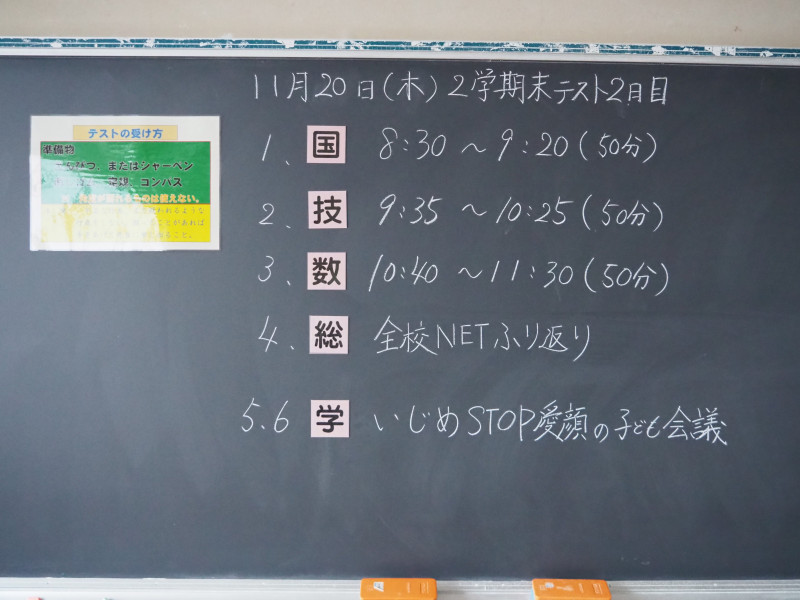 11月20日(木) 2学期末テスト2日目
テストの受け方
準備物
またはシャーペン
コンパス
1、国 8:30 〜 9:20 (50分)
2、技 9:35 〜 10:25 (50分)
3、数 10:40 〜 11:30 (50分)
4、総 全校NETふり返り
5.6 学 いじめSTOP愛顔の子ども会議